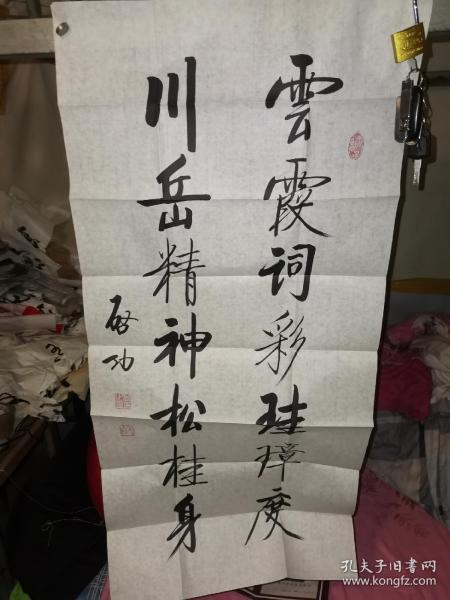 雲霞词彩珪璋度
川岳精神松桂身
启功
孔夫子旧书网
www.kongfz.com